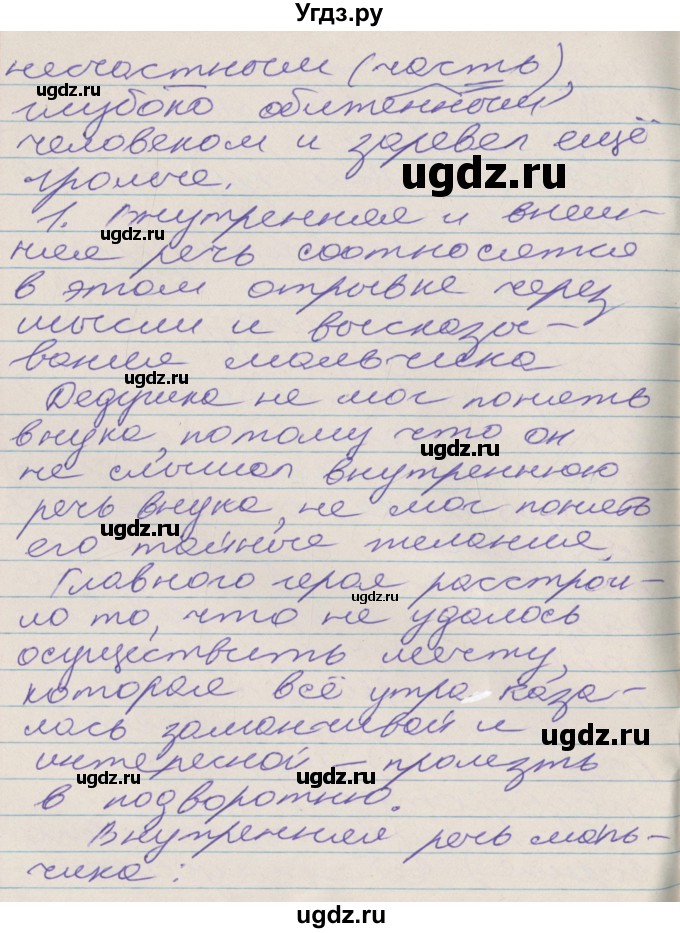 Угдз.ру
несчастным (часть),
глубоко обиженным
человеком и заревел ещё
громче.
1. Внутренняя и внеш-
няя речь соотносятся
в этом отрывке через
мысли и высказы-
вания мальчика
Дедушка не мог понять
внука, потому что он
не слышал внутреннюю
речь внука, не мог понять
его тайные желания.
Главного героя расстрои-
ло то, что не удалось
осуществить мечту,
которая всё утро каза-
лась заманчивой и
интересной – пролезть
в подворотню.
Внутренняя речь маль-
чика:
ugdz.ru
ugdz.ru
ugdz.ru
ugdz.ru
ugdz.ru
ugdz.ru
ugdz.ru
ugdz.ru
ugdz.ru
ugdz.ru
ugdz.ru